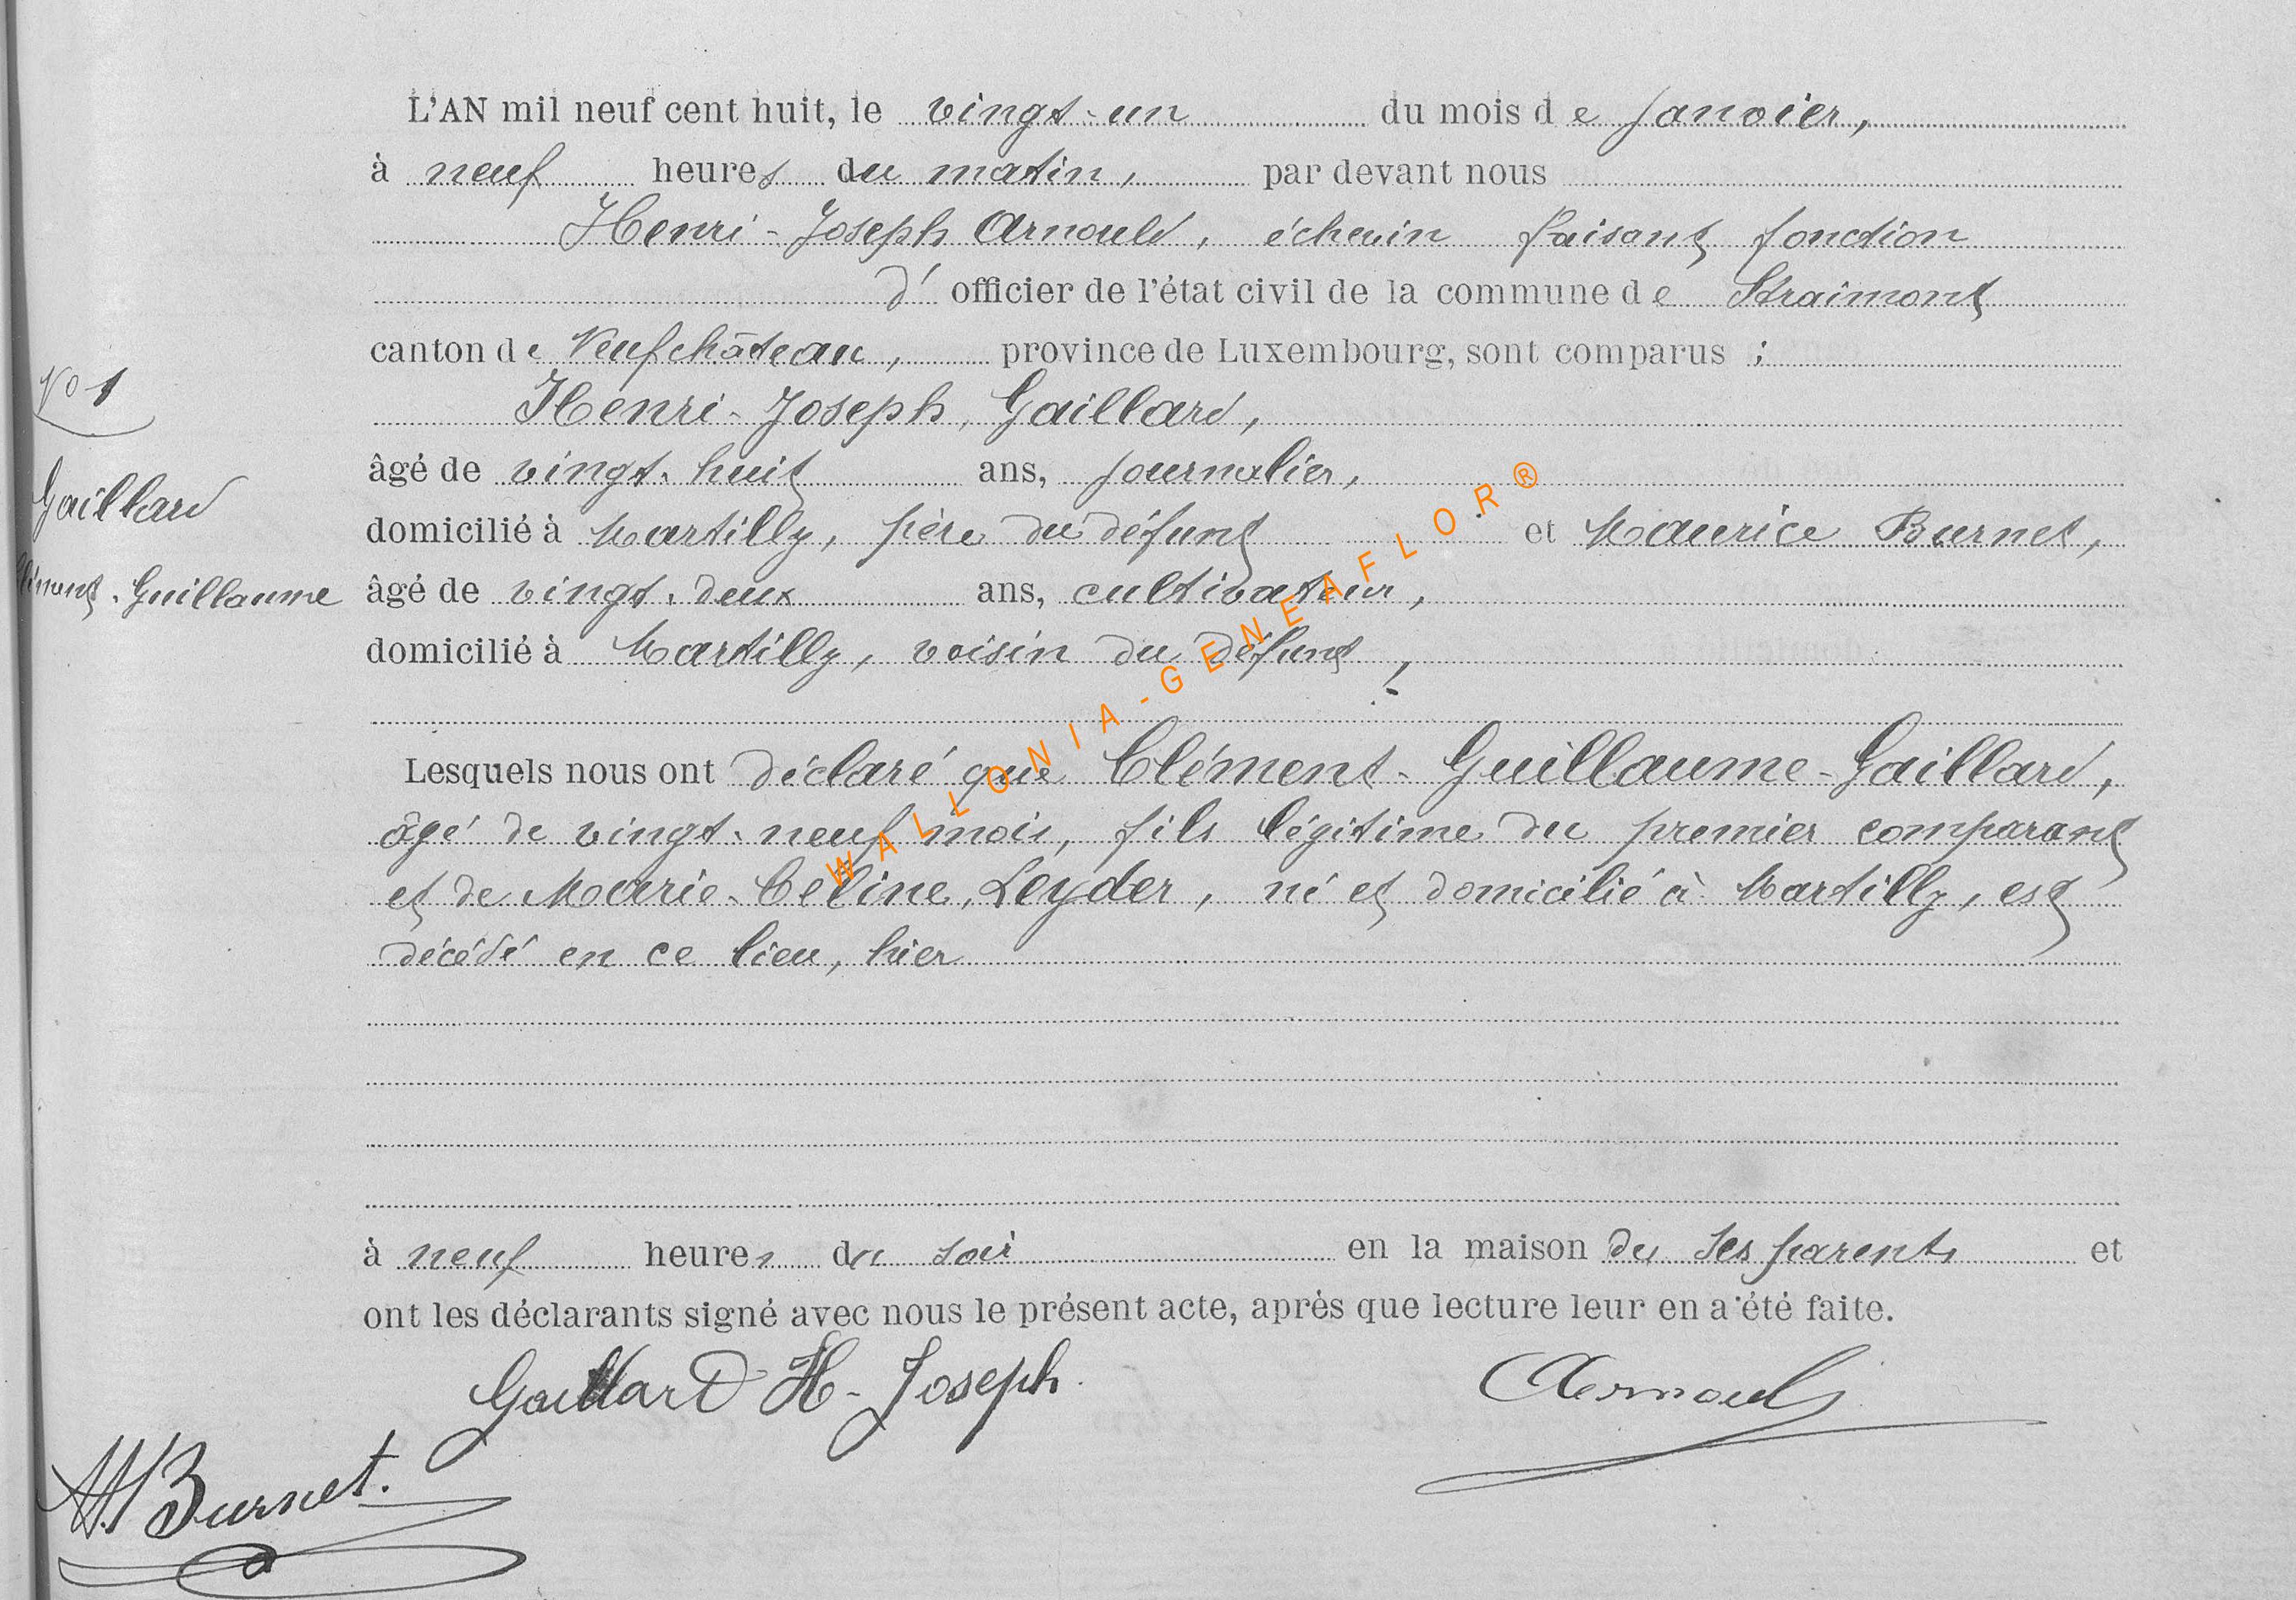 L'AN mil neuf cent huit, le vingt-un du mois de janvier,
à neuf heures du matin, par devant nous
Henri-Joseph Arnould, échevin faisant fonction
d'officier de l'état civil de la commune de Straimont
canton de Neufchâteau, province de Luxembourg, sont comparus :
Henri-Joseph, Gaillard,
âgé de vingt-huit ans, journalier,
domicilié à Martilly, père du défunt et Maurice Burnet,
âgé de vingt-deux ans, cultivateur,
domicilié à Martilly, voisin du défunt,
Lesquels nous ont déclaré que Clément-Guillaume-Gaillard,
âgé de vingt-neuf mois, fils légitime du premier comparant
et de Marie-Celine, Leyder, né et domicilié à Martilly, est
décédé en ce lieu, hier
à neuf heures du soir en la maison de ses parents et
ont les déclarants signé avec nous le présent acte, après que lecture leur en a été faite.
Gaillard H-Joseph.
Arnould
M Burnet.
No 1
Gaillard
Clément-Guillaume
WALLONIA-GENEAFLOR®